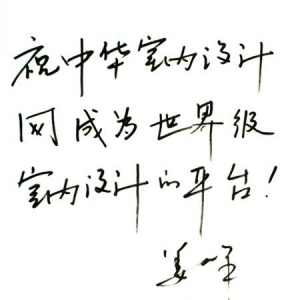 祝中华室内设计
网成为世界级
室内设计的平台！
姜峰